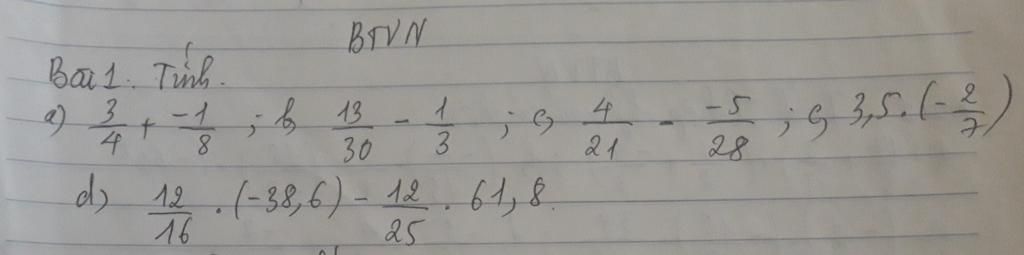 BTVN
Bài 1. Tính.
a) 3/4 + -1/8 ; b, 13/30 - 1/3 ; c, 4/21 - -5/28 ; c, 3,5.(-2/7)
d) 12/16 . (-38,6) - 12/25 . 61,8.